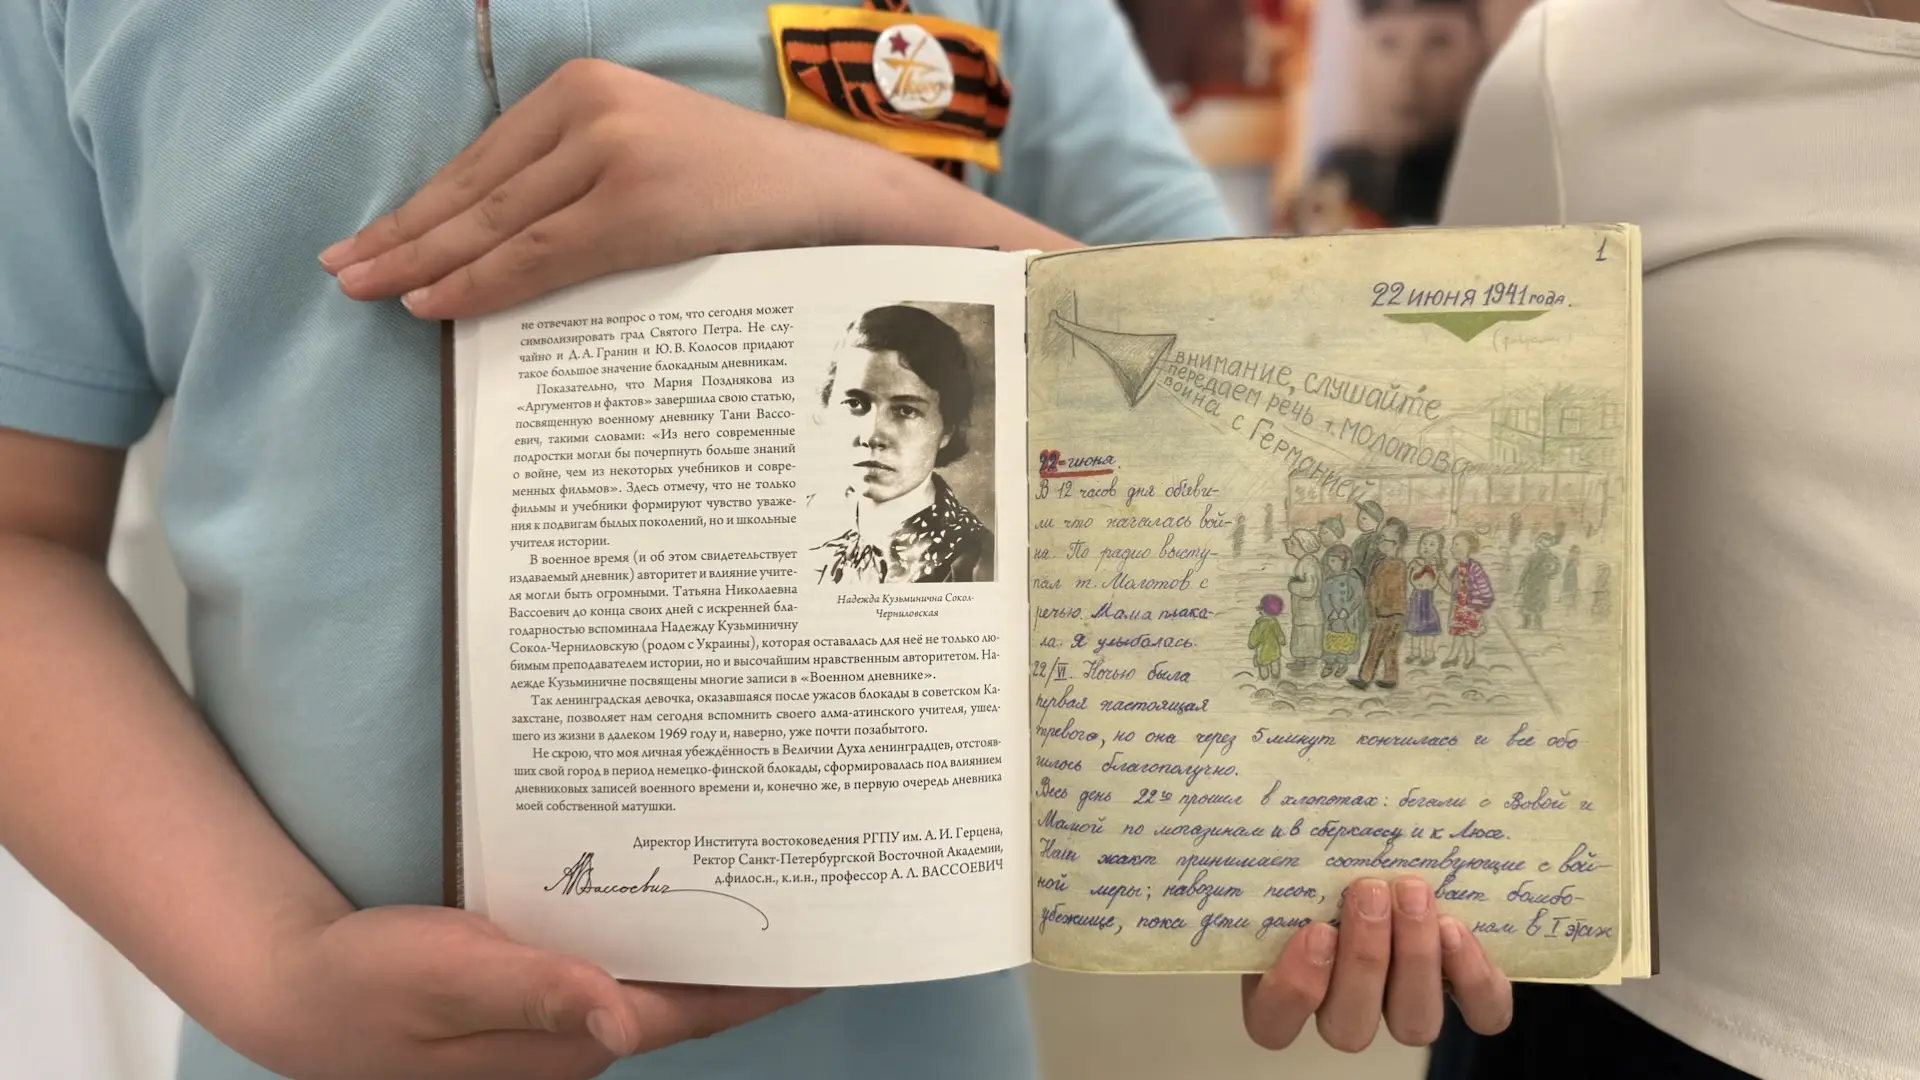 не отвечают на вопрос о том, что сегодня может
символизировать град Святого Петра. Не слу-
чайно и Д. А. Гранин и Ю. В. Колосов придают
такое большое значение блокадным дневникам.
Показательно, что Мария Позднякова из
«Аргументов и фактов» завершила свою статью,
посвященную военному дневнику Тани Вассо-
евич, такими словами: «Из него современные
подростки могли бы почерпнуть больше знаний
о войне, чем из некоторых учебников и совре-
менных фильмов». Здесь отмечу, что не только
фильмы и учебники формируют чувство уваже-
ния к подвигам былых поколений, но и школьные
учителя истории.
В военное время (и об этом свидетельствует
издаваемый дневник) авторитет и влияние учите-
ля могли быть огромными. Татьяна Николаевна
Вассоевич до конца своих дней с искренней бла-
годарностью вспоминала Надежду Кузьминичну
Сокол-Черниловскую (родом с Украины), которая оставалась для неё не только лю-
бимым преподавателем истории, но и высочайшим нравственным авторитетом. На-
дежде Кузьминичне посвящены многие записи в «Военном дневнике».
Так ленинградская девочка, оказавшаяся после ужасов блокады в советском Ка-
захстане, позволяет нам сегодня вспомнить своего алма-атинского учителя, ушед-
шего из жизни в далеком 1969 году и, наверно, уже почти позабытого.
Не скрою, что моя личная убеждённость в Величии Духа ленинградцев, отстояв-
ших свой город в период немецко-финской блокады, сформировалась под влиянием
дневниковых записей военного времени и, конечно же, в первую очередь дневника
моей собственной матушки.
Надежда Кузьминична Сокол-
Черниловская
Директор Института востоковедения РГПУ им. А. И. Герцена,
Ректор Санкт-Петербургской Восточной Академии,
д.филос.н., к.и.н., профессор А. Л. ВАССОЕВИЧ
1
22 июня 1941 года.
внимание, слушайте
передаем речь т. Молотова
война с Германией
22-июня.
В 12 часов дня объяви-
ли что началась вой-
на. По радио высту-
пал т. Молотов с
речью. Мама плака-
ла. Я улыбалась.
22/VI. Ночью была
первая настоящая
тревога, но она через 5 минут кончилась и все обо-
шлось благополучно.
Весь день 22го прошел в хлопотах: бегали с Вовой и
Мамой по магазинам и в сберкассу и к Люсе.
Наш жакт принимает соответствующие с вой-
ной меры; навозит песок, вает бомбо-
убежище, пока дети дома нам в I этаж